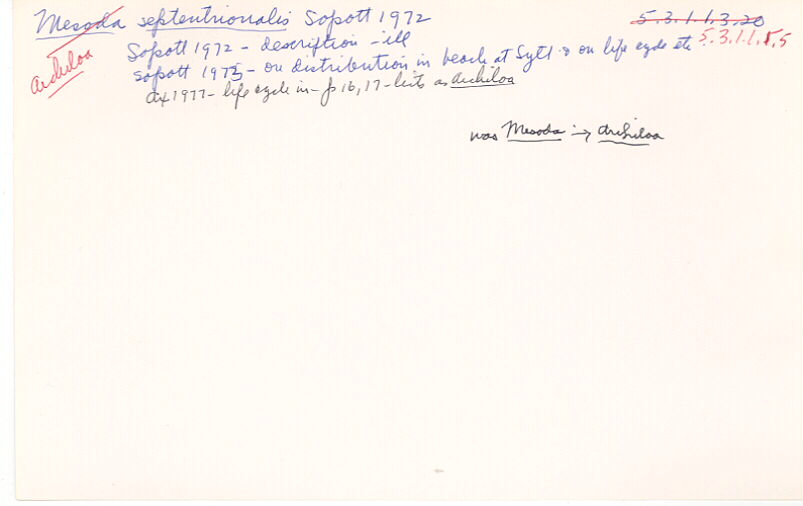 Mesoda septentrionalis Sopott 1972
5.3.1.1.3.20
Archiloa
5.3.1.1.5.5
Sopott 1972 - description - ill
Sopott 1973 - on distribution in beach at Sylt & on life cycle etc
Ax 1977 - life cycle in - p 16, 17 - lists as Archiloa
was Mesoda → Archiloa